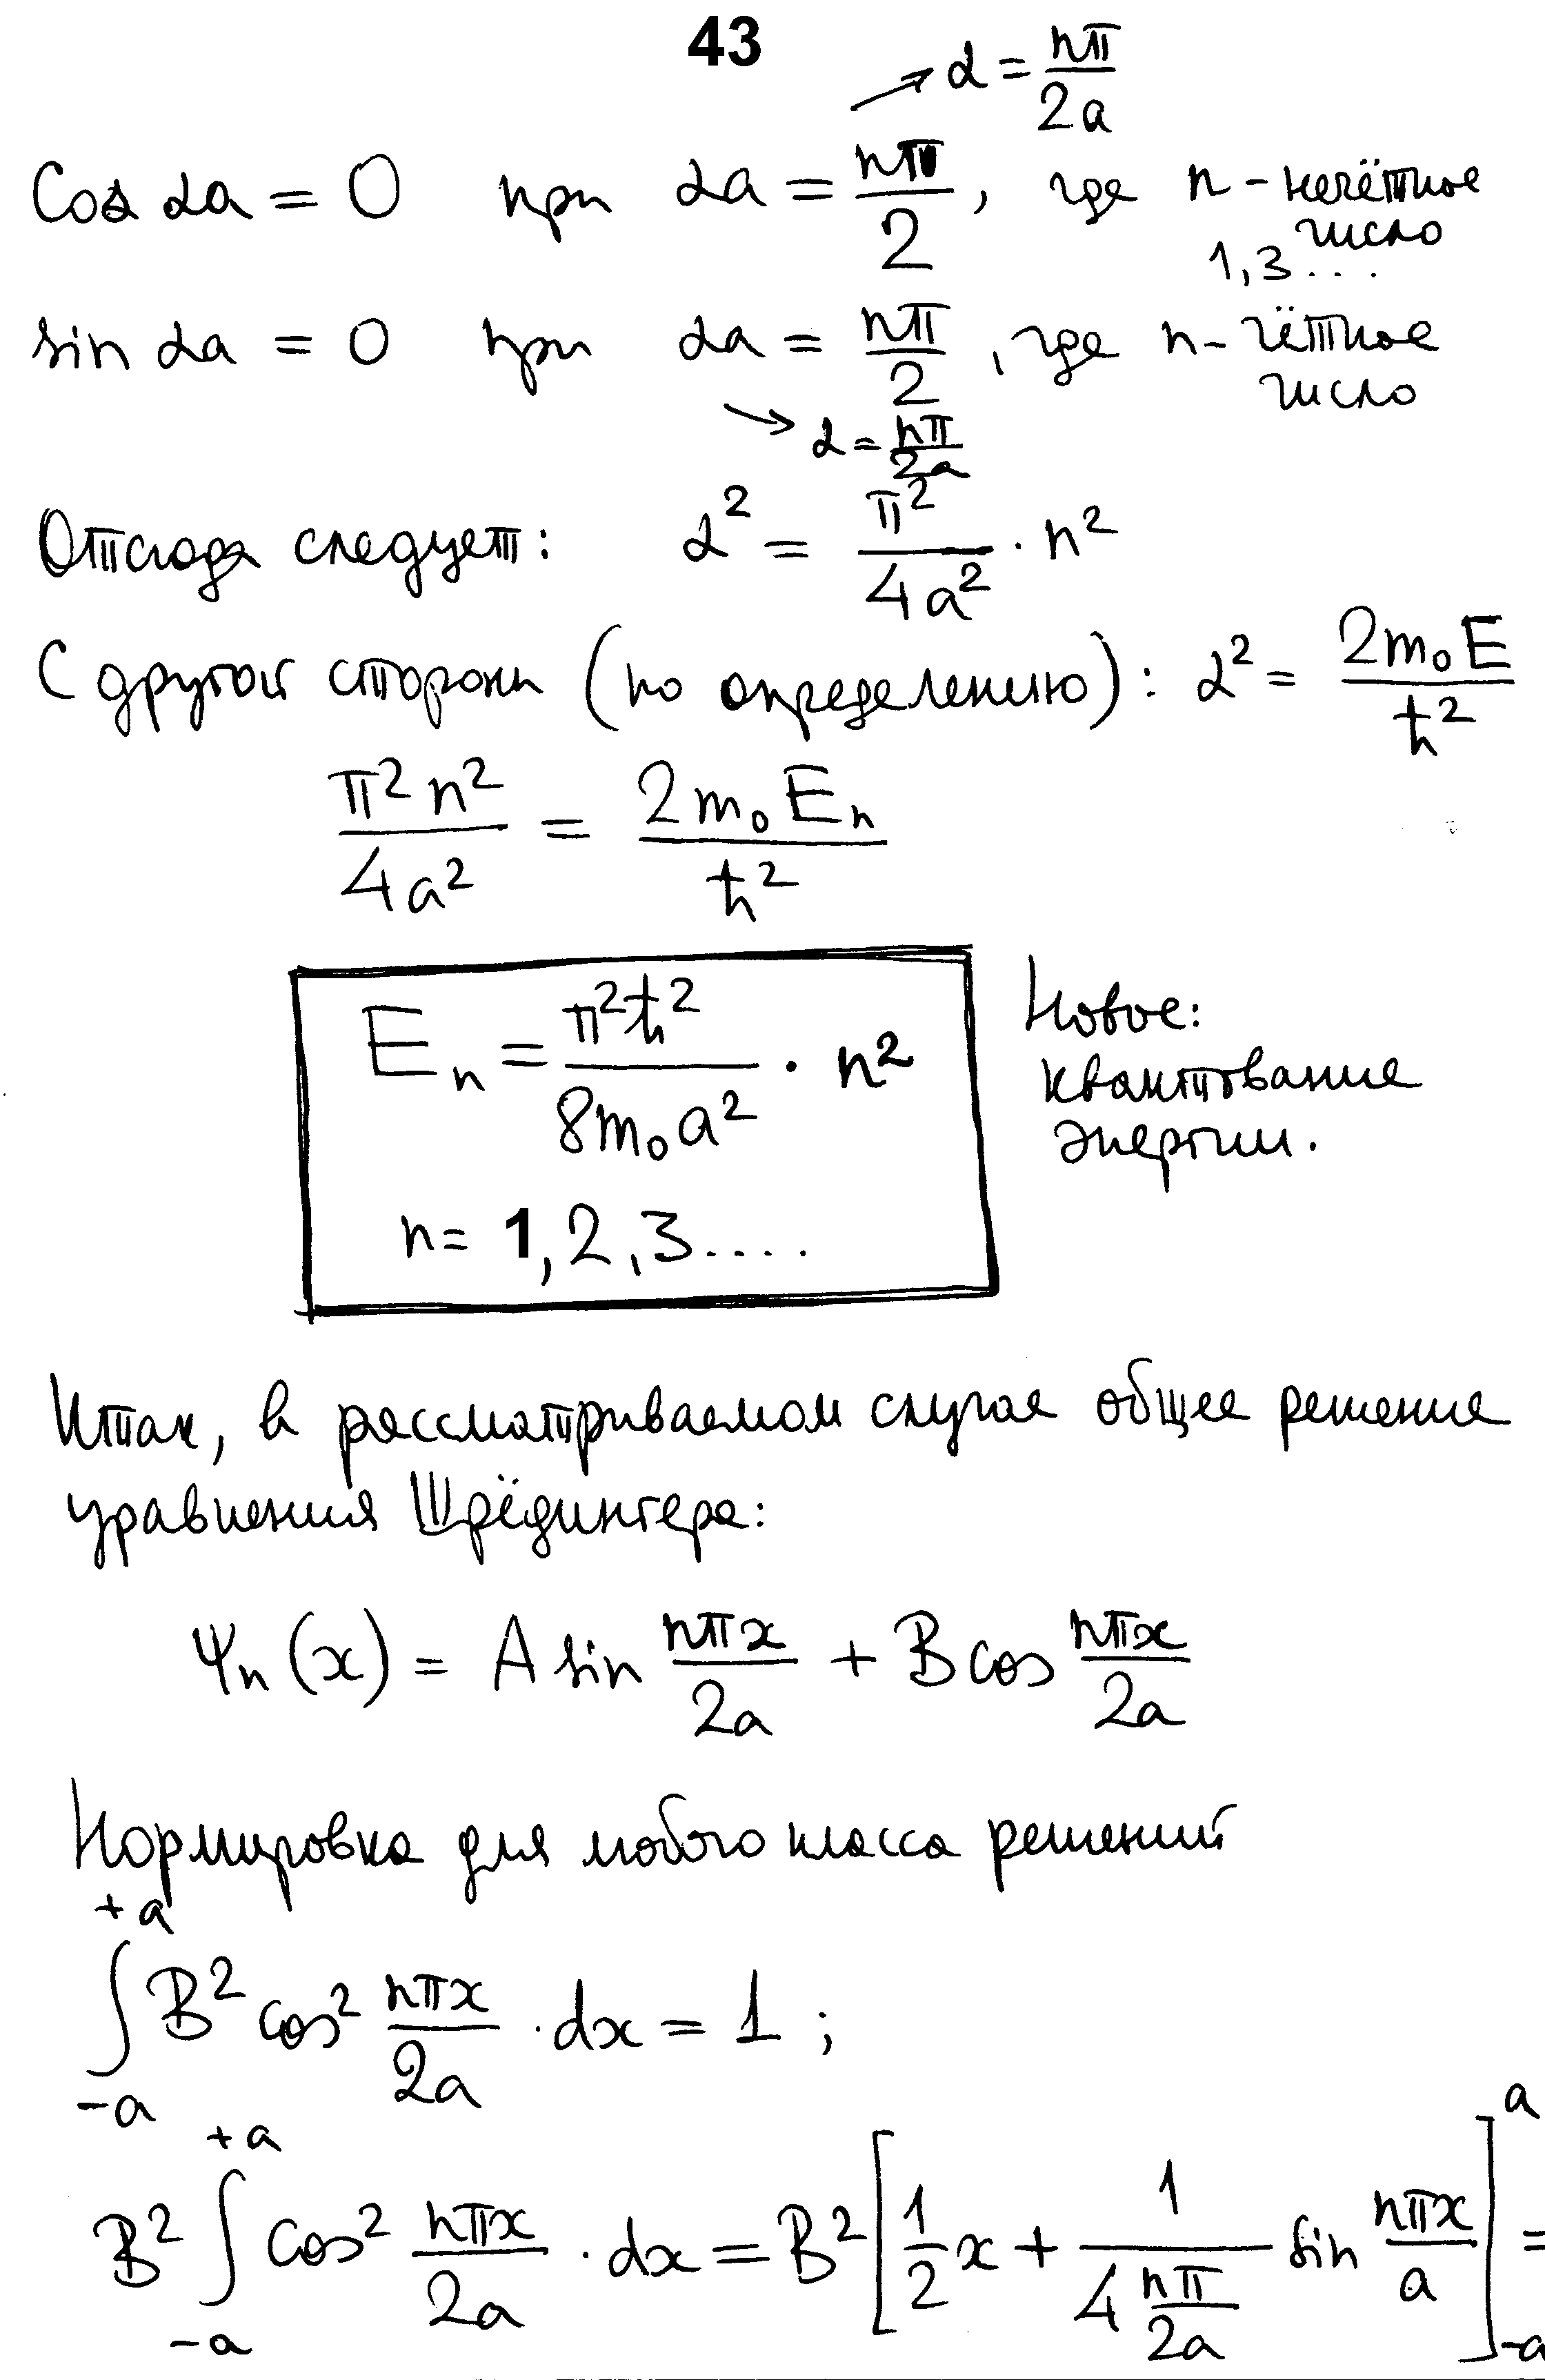 43
α = nπ/2a
Cos αa = 0 при αa = nπ/2, где n - нечётное число 1,3...
sin αa = 0 при αa = nπ/2, где n - чётное число
α = nπ/2a
Отсюда следует: α² = π²/4a² · n²
С другой стороны (по определению): α² = 2m₀E/ħ²
π²n²/4a² = 2m₀Eₙ/ħ²
Eₙ = π²ħ²/8m₀a² · n²
n = 1,2,3....
Новое:
квантование
энергии.
Итак, в рассматриваемом случае общее решение
уравнения Шрёдингера:
Ψₙ(x) = A sin nπx/2a + B cos nπx/2a
Нормировка для любого класса решений
∫₋ₐ⁺ᵃ B² cos² nπx/2a · dx = 1 ;
B² ∫₋ₐ⁺ᵃ cos² nπx/2a · dx = B² [1/2 x + 1/(4 nπ/2a) sin nπx/a]₋ₐᵃ =